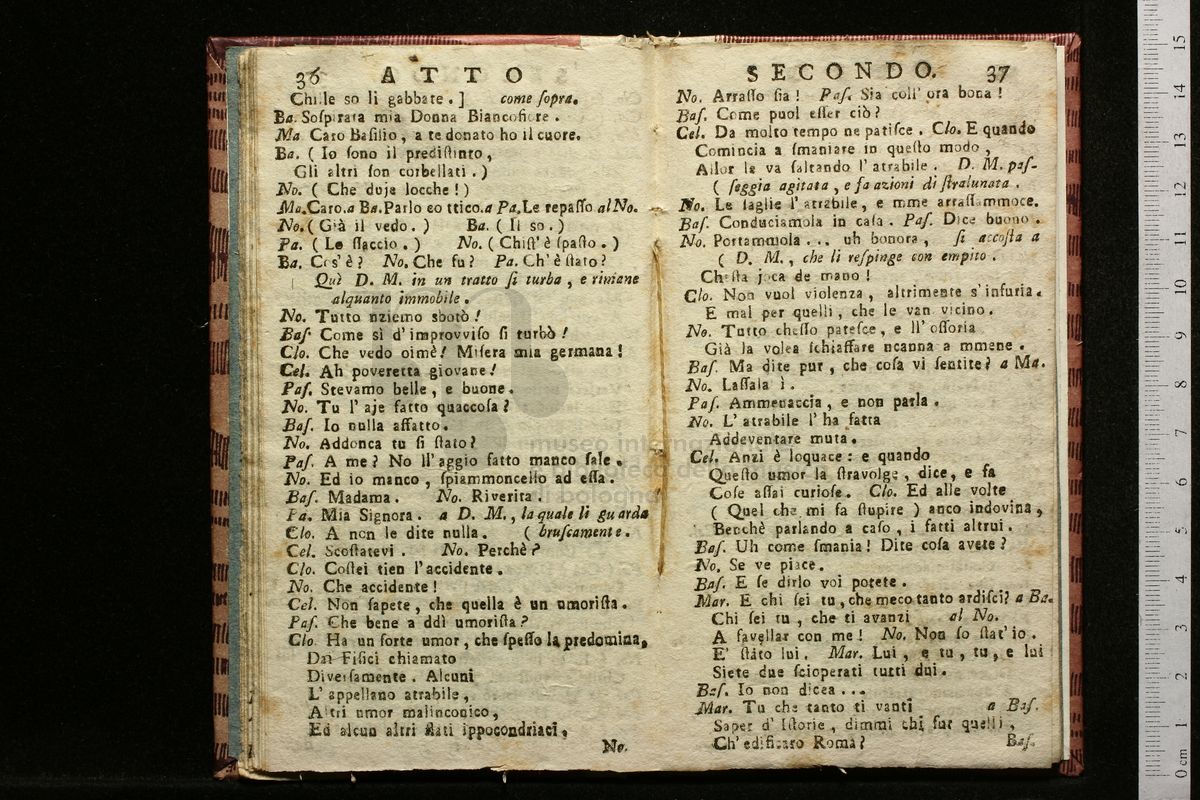 36 ATTO
Chille so li gabbate.] come ſopra.
Ba. Soſpirata mia Donna Biancofiore.
Ma. Caro Baſilio, a te donato ho il cuore.
Ba. ( Io ſono il prediſtinto,
Gli altri ſon corbellati. )
No. ( Che duje locche! )
Ma. Caro. a Ba. Parlo co ttico. a Pa. Le repaſſo al No.
No. ( Già il vedo. ) Ba. ( Il so. )
Pa. ( Lo ſſaccio. ) No. ( Chiſt' è ſpaſto. )
Ba. Cos' è? No. Che fu? Pa. Ch' è ſtato?
Quì D. M. in un tratto ſi turba, e rimane
alquanto immobile.
No. Tutto nziemo sbotò!
Baſ. Come sì d' improvviſo ſi turbò!
Clo. Che vedo oimè! Miſera mia germana!
Cel. Ah poveretta giovane!
Paſ. Stevamo belle, e buone.
No. Tu l' aje fatto quaccoſa?
Baſ. Io nulla affatto.
No. Addonca tu ſi ſtato?
Paſ. A me? No ll' aggio fatto manco ſale.
No. Ed io manco, ſpiammoncello ad eſſa.
Baſ. Madama. No. Riverita.
Pa. Mia Signora. a D. M., la quale li guarda
Clo. A non le dite nulla. ( bruſcamente.
Cel. Scoſtatevi. No. Perchè?
Clo. Coſtei tien l' accidente.
No. Che accidente!
Cel. Non ſapete, che quella è un umoriſta.
Paſ. Che bene a ddì umoriſta?
Clo. Ha un forte umor, che ſpeſſo la predomina,
Dai Fiſici chiamato
Diverſamente. Alcuni
L' appellano atrabile,
Altri umor malinconico,
Ed alcun altri flati ippocondriaci,
No.
SECONDO. 37
No. Arraſſo ſia! Paſ. Sia coll' ora bona!
Baſ. Come puol eſſer ciò?
Cel. Da molto tempo ne patiſce. Clo. E quando
Comincia a ſmaniare in queſto modo,
Allor le va ſaltando l' atrabile. D. M. paſ-
( ſeggia agitata, e fa azioni di ſtralunata.
No. Le ſaglie l' atrabile, e mme arraſſammoce.
Baſ. Conduciamola in caſa. Paſ. Dice buono.
No. Portammola... uh bonora, ſi accoſta a
( D. M., che li reſpinge con empito.
Cheſta joca de mano!
Clo. Non vuol violenza, altrimente s' infuria.
E mal per quelli, che le van vicino.
No. Tutto cheſſo pateſce, e ll' oſſoria
Già la volea ſchiaffare ncanna a mmene.
Baſ. Ma dite pur, che coſa vi ſentite? a Ma.
No. Laſſala ì.
Paſ. Ammenaccia, e non parla.
No. L' atrabile l' ha fatta
Addeventare muta.
Cel. Anzi è loquace: e quando
Queſto umor la ſtravolge, dice, e fa
Coſe aſſai curioſe. Clo. Ed alle volte
( Quel che mi fa ſtupire ) anco indovina,
Benchè parlando a caſo, i fatti altrui.
Baſ. Uh come ſmania! Dite coſa avete?
No. Se ve piace.
Baſ. E ſe dirlo voi potete.
Mar. E chi ſei tu, che meco tanto ardiſci? a Ba.
Chi ſei tu, che ti avanzi al No.
A favellar con me! No. Non ſo ſtat' io.
E' ſtato lui. Mar. Lui, e tu, tu, e lui
Siete due ſcioperati tutti dui.
Baſ. Io non dicea...
Mar. Tu che tanto ti vanti a Baſ.
Saper d' Iſtorie, dimmi chi fur quelli,
Ch' edificaro Roma?
Baſ.
museo internazionale
biblioteca della musica
di bologna